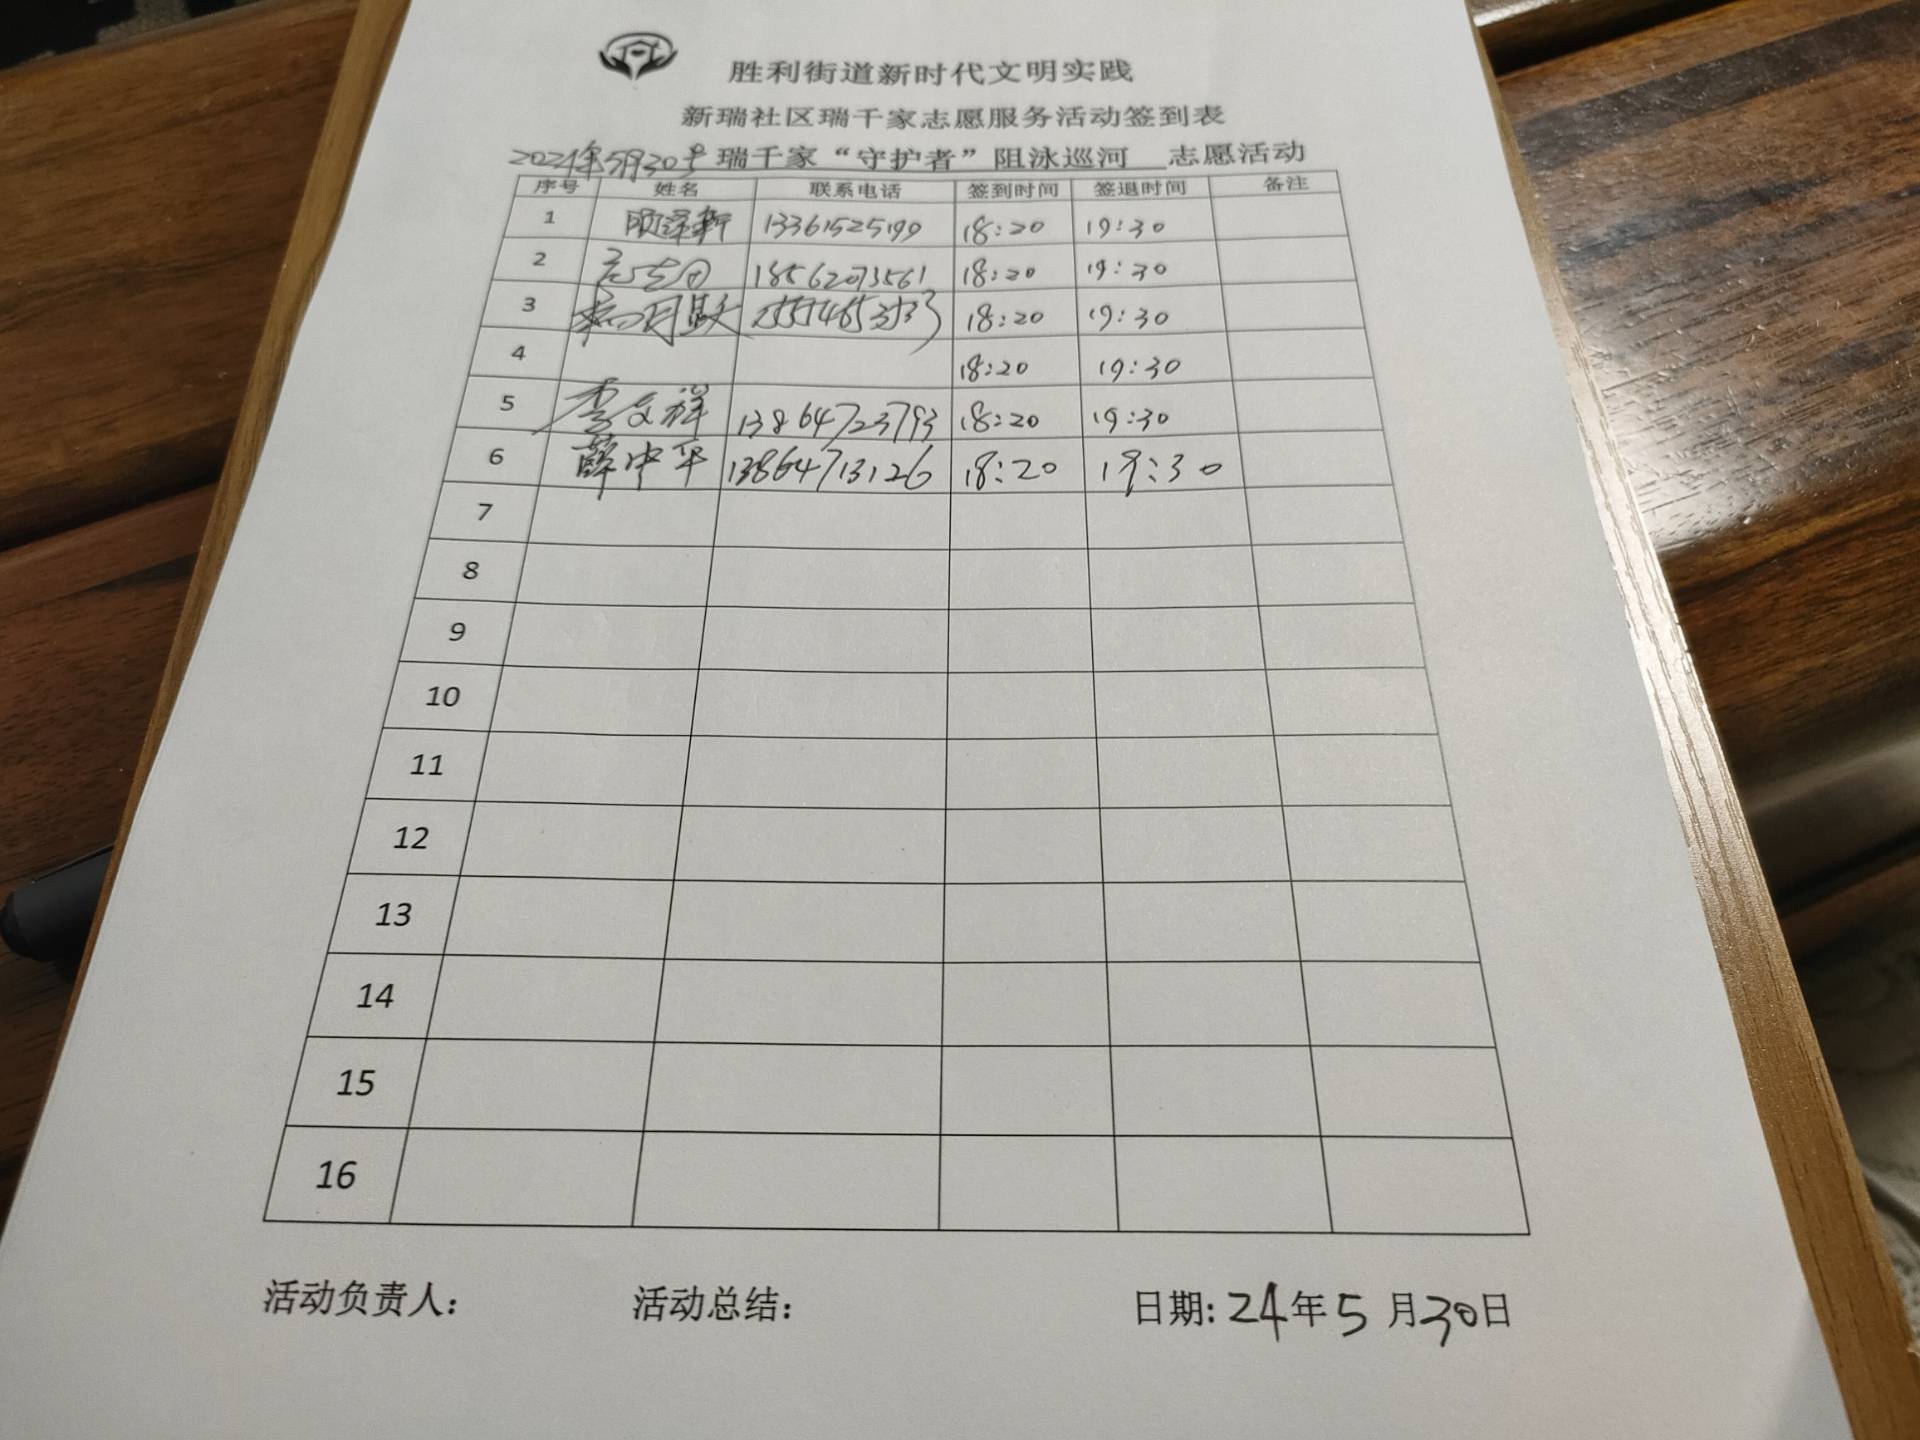 胜利街道新时代文明实践
新瑞社区瑞千家志愿服务活动签到表
2024年5月30号瑞千家“守护者”阻泳巡河 志愿活动
序号 姓名 联系电话 签到时间 签退时间 备注
1 13361525199 18:20 19:30
2 18562073561 18:20 19:30
3 18:20 19:30
4 18:20 19:30
5 李文祥 13864723793 18:20 19:30
6 薛中平 13864713126 18:20 19:30
7
8
9
10
11
12
13
14
15
16
活动负责人: 活动总结: 日期: 24年5月30日